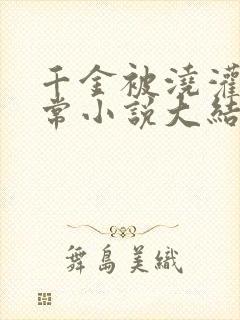 千金被澆灌
常小説大結
舞島美織